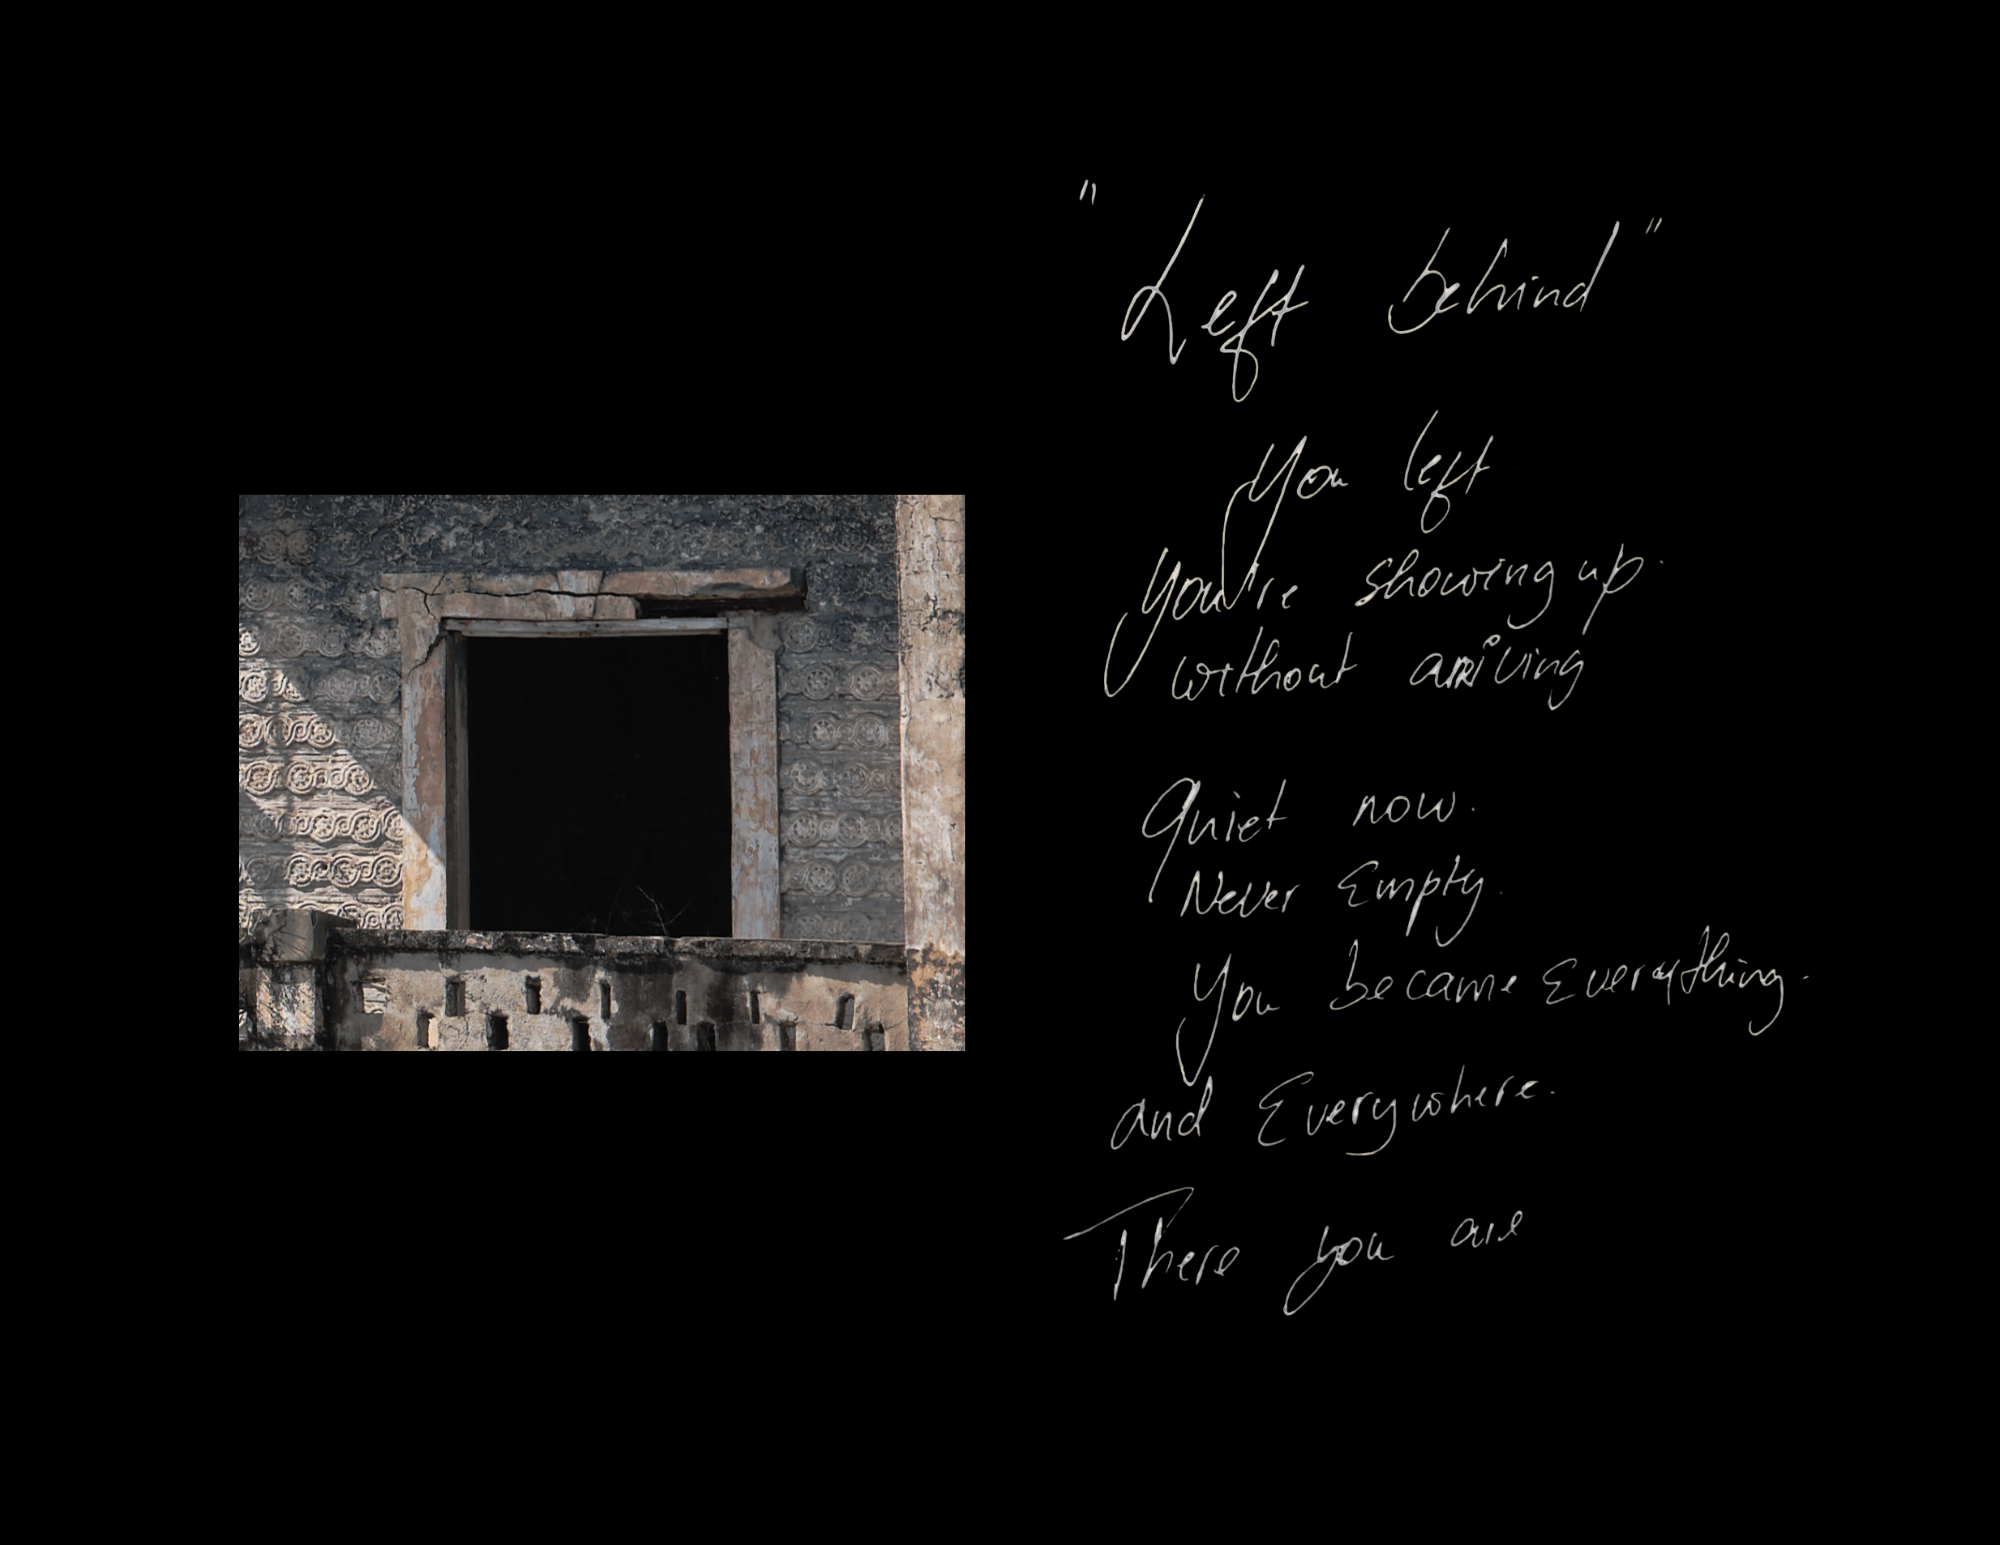 "Left behind"
You left
you're showing up.
without arriving
Quiet now.
Never Empty.
You became Everything.
and Everywhere.
There you are